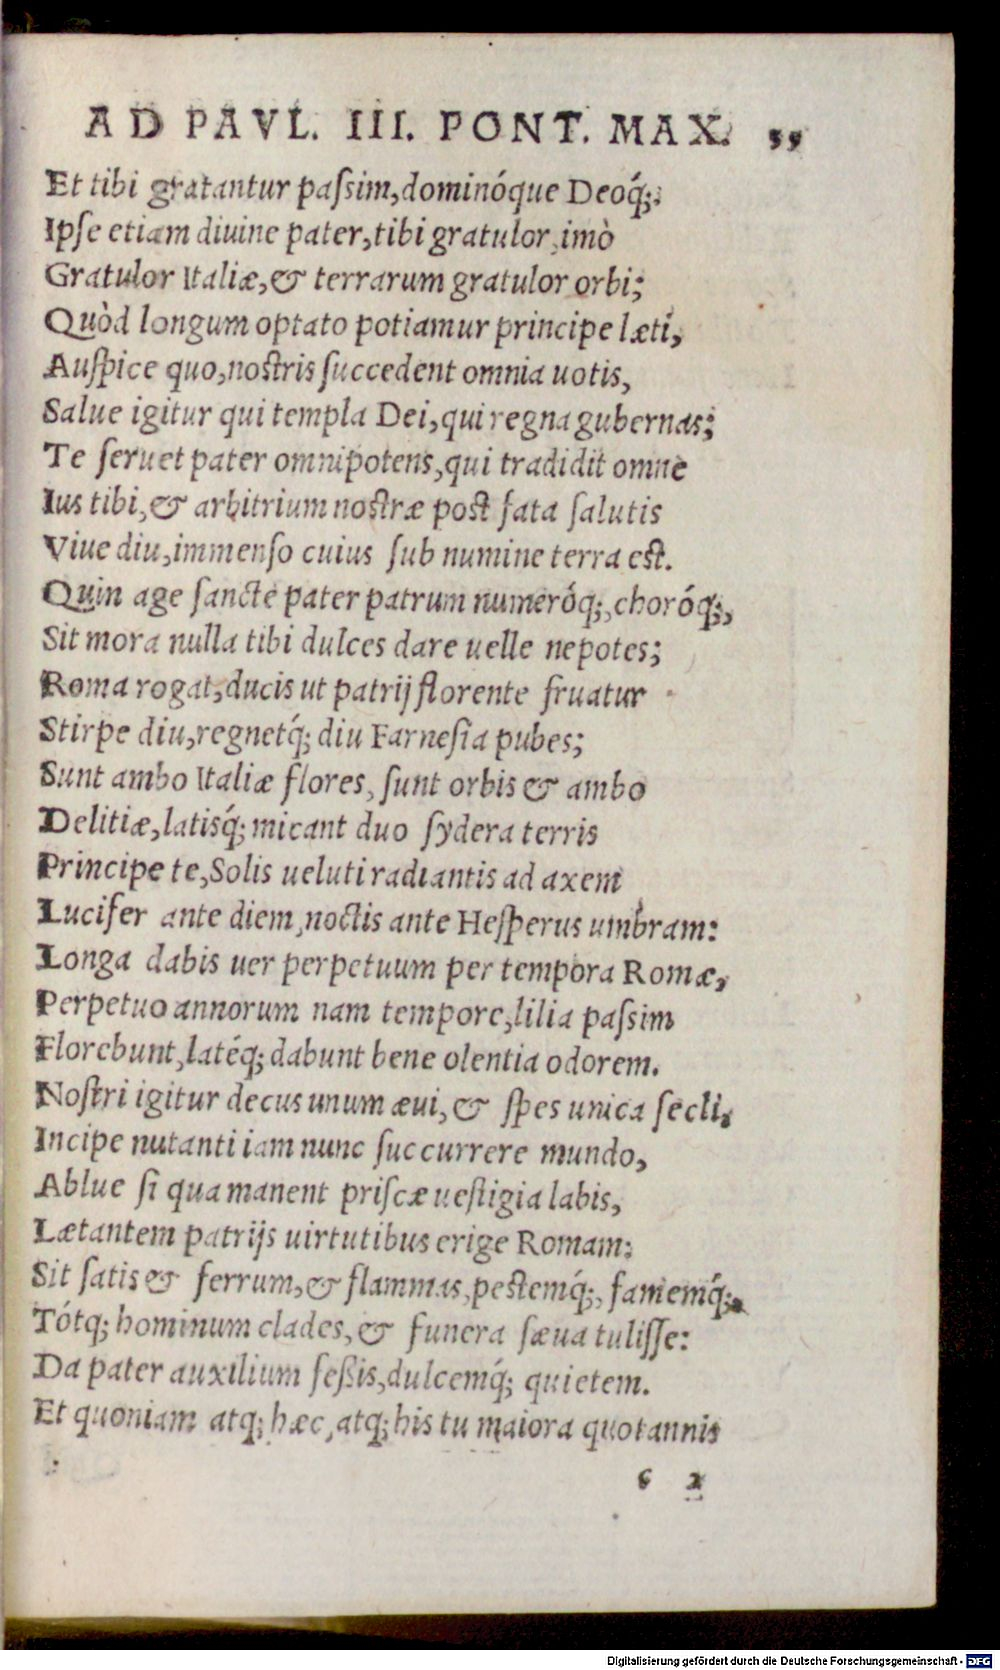 AD PAVL. III. PONT. MAX.
Et tibi gratantur paſsim, dominóque Deoq́;.
Ipſe etiam diuine pater, tibi gratulor, imò
Gratulor Italiæ, & terrarum gratulor orbi;
Quòd longum optato potiamur principe læti,
Auſpice quo, noſtris ſuccedent omnia uotis,
Salue igitur qui templa Dei, qui regna gubernas;
Te ſeruet pater omnipotens, qui tradidit omne
Ius tibi, & arbitrium noſtræ poſt fata ſalutis
Viue diu, immenſo cuius ſub numine terra eſt.
Quin age ſancte pater patrum numeróq;, choróq;,
Sit mora nulla tibi dulces dare uelle nepotes;
Roma rogat, ducis ut patrij florente fruatur
Stirpe diu, regnetq́; diu Farneſia pubes;
Sunt ambo Italiæ flores, ſunt orbis & ambo
Delitiæ, latisq́; micant duo ſydera terris
Principe te, Solis ueluti radiantis ad axem
Lucifer ante diem, noctis ante Heſperus umbram:
Longa dabis uer perpetuum per tempora Romæ,
Perpetuo annorum nam tempore, lilia paſsim
Florebunt, latéq; dabunt bene olentia odorem.
Noſtri igitur decus unum æui, & ſpes unica ſecli,
Incipe nutanti iam nunc ſuccurrere mundo,
Ablue ſi qua manent priſcæ ueſtigia labis,
Lætantem patrijs uirtutibus erige Romam:
Sit ſatis & ferrum, & flammas, peſtemq́;, famemq́;
Tótq; hominum clades, & funera ſæua tuliſſe:
Da pater auxilium feßis, dulcemq́; quietem.
Et quoniam atq; hæc, atq; his tu maiora quotannis
2
Digitalisierung gefördert durch die Deutsche Forschungsgemeinschaft - DFG